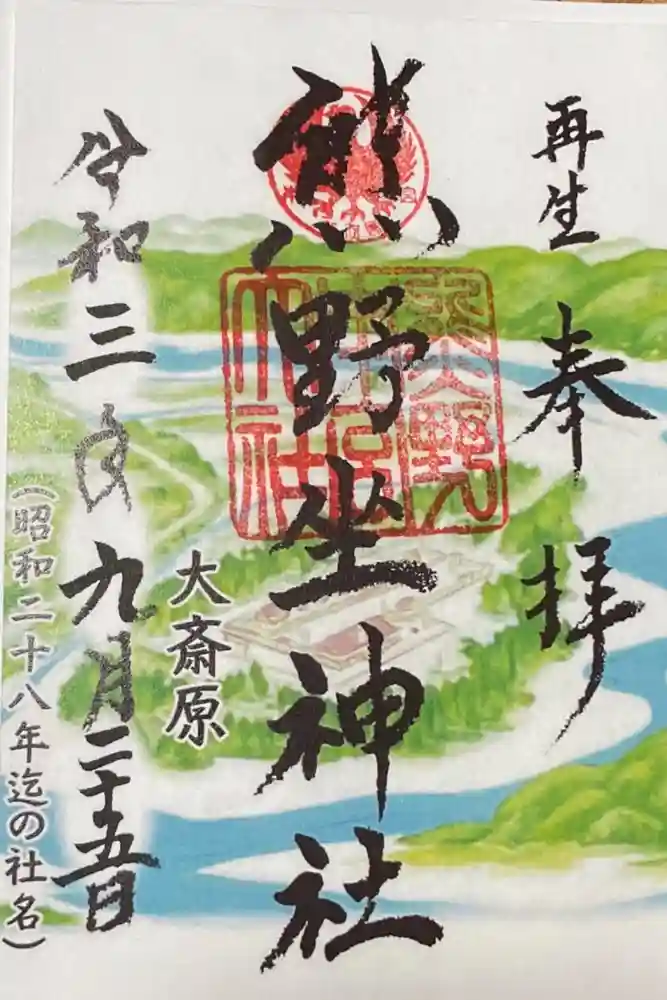 再生
奉拝
熊野坐神社
大斎原
令和三年九月二十五日
(昭和二十八年迄の社名)